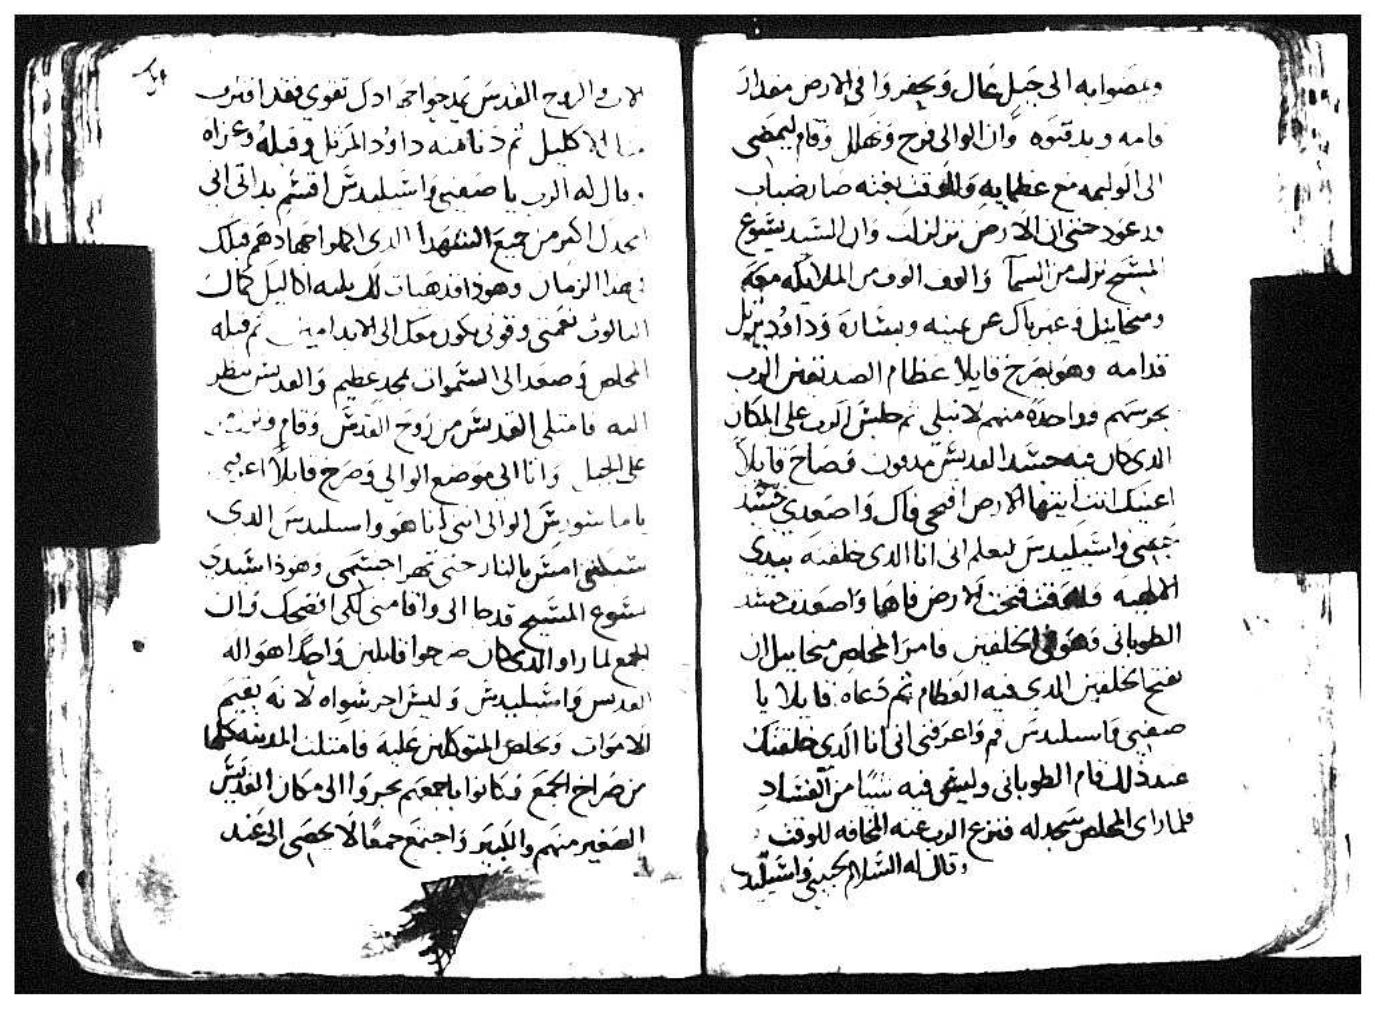 ويمضوا به الى جبل عال ويحفروا في الارض مقدار
قامه ويدفنوه وان الوالى فرح وتهلل وقام ليمضى
الى الوليمه مع عظمايه وللوقت بغته صار ضباب
ورعود حتى ان الارض تزلزلت وان السيد يسوع
المسيح نزل من السمآ والوف الوف من الملايكه معه
وميخاييل وغبريال عن يمينه ويساره وداود يرتل
قدامه وهو يصرخ قايلا عظام الصديقين الرب
يحرسهم وواحدة منهم لا تبلى ثم جلس الرب على المكان
الدى كان فيه جسد القديس مدفون وصاح قايلاً
اعنيك انت ايتها الارض افتحى فاك واصعدي جسد
واسيليدس ليعلم انى انا الدى خلقته بيدي
الالهيه وللوقت فتحت الارض فاها واصعدت جسد
الطوبانى وهو فى الخلقين وامر المخلص ميخاييل ان
يفتح الخلقين الدى فيه العظام ثم دعاه قايلا يا
صفيى واسيليدس قم واعرفنى انى انا الدى خلقتك
عند ذلك قام الطوبانى وليس فيه شيئا من الفساد
فلما راى المخلص سجد له فنزع الرب عنه المخافه للوقت
وقال له السلام لحبيبى واسيليدس
والروح القدس تقوي فقد اقترب
الاكليل ثم دنا منه داود المرتل وقبله وعزاه
وقال له الرب يا صفيى واسيليدس اقسم بداتى انى
اكتر من جميع الشهدا الدى اكملوا جهادهم قبلك
هدا الزمان وهوذا قد هيات لك ثلثه اكاليل كمال
التالوت نعمتى وقوتى يكون معك الى الابد امين ثم قبله
المخلص وصعد الى السموات بمجد عظيم والقديس ينظر
اليه فامتلى القديس من روح القدس وقام
على الجبل وانا الى موضع الوالي وصرخ قايلاً
الوالى انى انا هو واسيليدس الدى
بالنار حتى تهرا جسمى وهوذا سيدي
يسوع المسيح قد جا الى واقامنى لكى افضحك وان
الجمع لما راو الدى كان صرخوا قايلين واحدًا هو اله
القديس واسيليدس وليس اخر سواه لانه يقيم
الاموات ويخلص المتوكلين عليه فامتلت المدينه كلها
من صراخ الجمع فكانوا باجمعهم يجروا الى مكان القديس
الصغير منهم والكبير واجتمع جمعًا لا يحصى الى عند